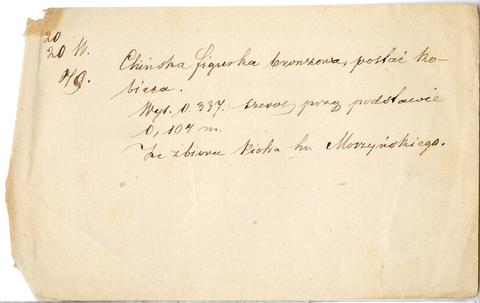 20
20 M.
49.
Chińska figurka bronzowa, postać ko-
bieca.
Wys. 0.337. szerok. przy podstawie
0,104 m.
Ze zbioru Piotra hr. Moszyńskiego.